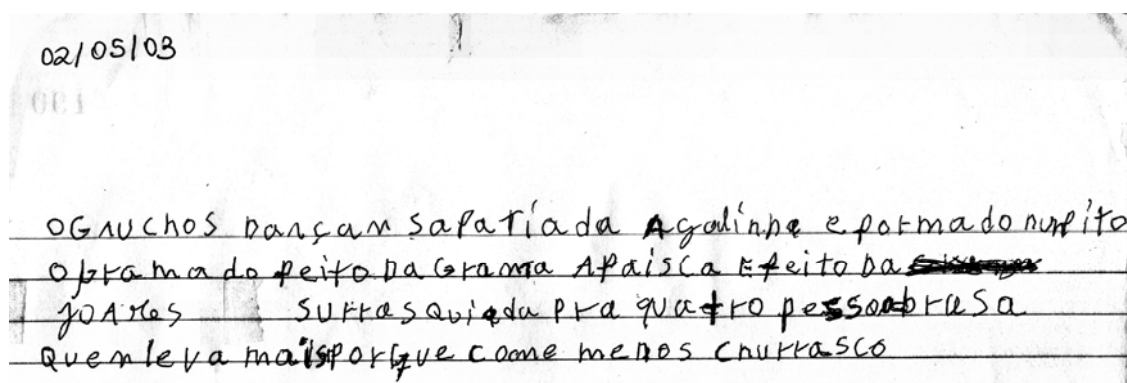 02/05/03
OGAUchos DANçAM SAPATíada A galinha e formado num peito
O bramado peito DA Grama A faisca E feito DA
JOARES surrasquiada Pra quatro pessoabrasa
Quem leva mais porque come menos churrasco